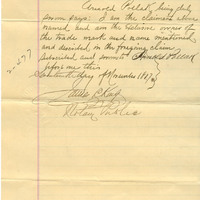 Arnold Pollak, being duly
sworn says: I am the claimant above
named, and am the exclusive owner of
the trade mark and name mentioned
and described in the foregoing claim
Subscribed and sworn to Arnold Pollak
before me this
day of November 1897
Notary Public